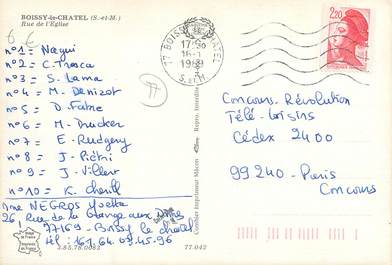 BOISSY-le-CHATEL (S.-et-M.)
Rue de l'Eglise
n°1 = Nagui
n°2 = C. Tosca
n°3 = S. Lama
n°4 = M. Denizot
n°5 = D.
n°6 = M. Drucker
n°7 = E.
n°8 = J. Piétri
n°9 = J. Villeret
n°10 = K. Cheryll
Mme NEGROS Yvette
26, Rue de la Grange aux Dîme
77169 - Boissy le chatel
tél : 64.03.45.96
3.85.78.0083
77.042
77 BOISSY-LE-CHATEL
17 30
1989
S. et M.
2,20
77
Combier Imprimeur Mâcon
Repro. interdite
Concours Révolution
Télé-Loisirs
Cédex 2400
99240 - Paris
Concours